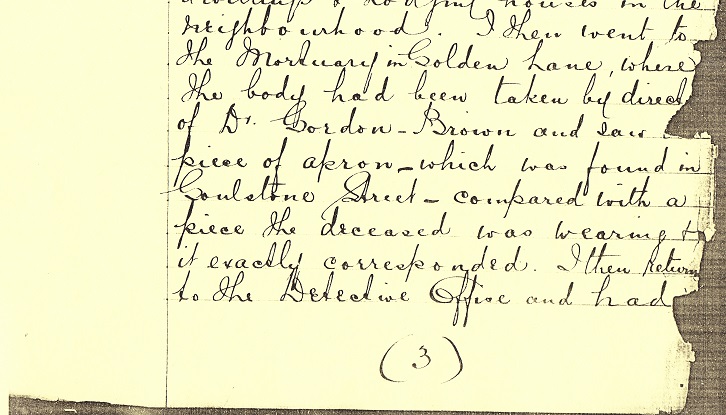 & lodging houses in the
neighbourhood. I then went to
the Mortuary in Golden Lane, where
the body had been taken by direc
of Dr. Gordon-Brown and saw
piece of apron – which was found in
Goulstone Street – compared with a
piece the deceased was wearing &
it exactly corresponded. I then return
to the Detective Office and had
(3)